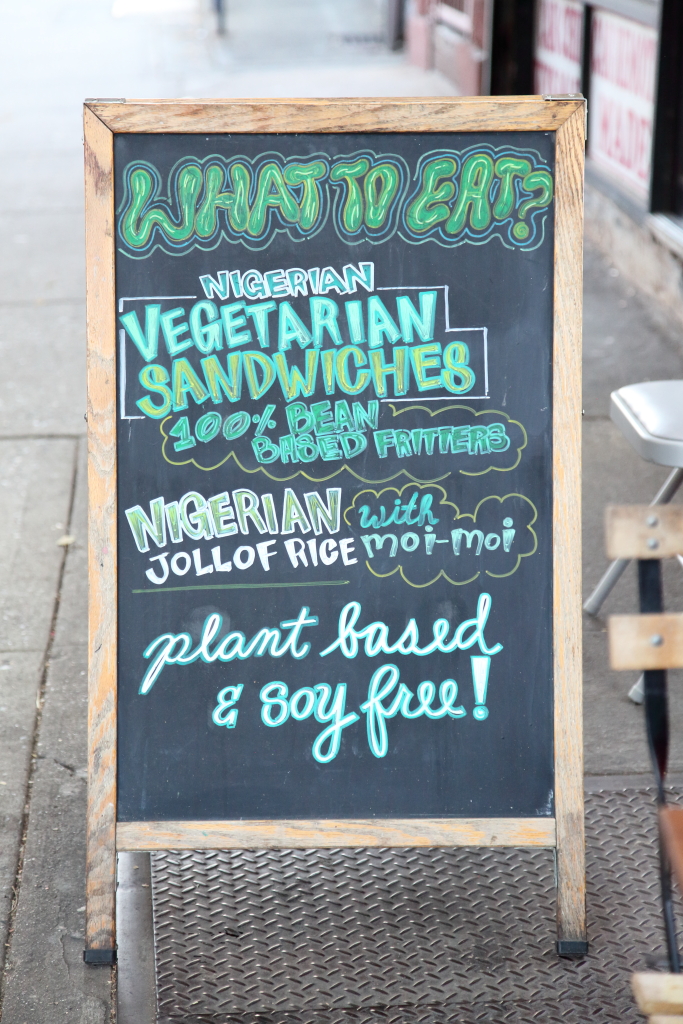 WHAT TO EAT?
NIGERIAN
VEGETARIAN
SANDWICHES
100% BEAN
BASED FRITTERS
NIGERIAN with
JOLLOF RICE moi-moi
plant based
& soy free!
MADE